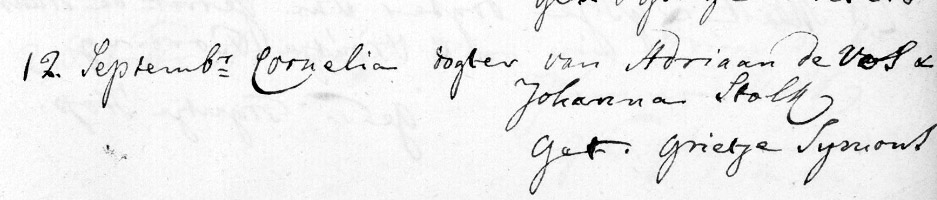 12. Septembr Cornelia dogter van Adriaan de Vos &
Johanna Stolk
Get. Grietje Symons